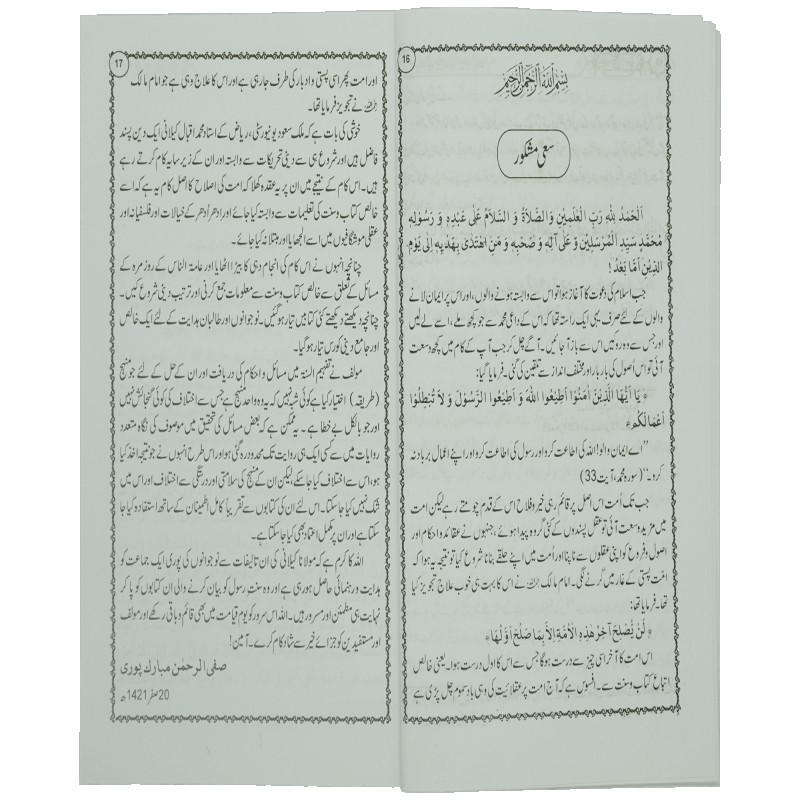 16
بِسْمِ اللّٰهِ الرَّحْمٰنِ الرَّحِيْمِ
سعی مشکور
اَلْحَمْدُ لِلّٰهِ رَبِّ الْعٰلَمِيْنَ وَ الصَّلاَةُ وَ السَّلاَمُ عَلٰى عَبْدِهٖ وَ رَسُوْلِهٖ
مُحَمَّدٍ سَيِّدِ الْمُرْسَلِيْنَ وَ عَلٰى آلِهٖ وَ صَحْبِهٖ وَ مَنِ اهْتَدٰى بِهَدْيِهٖ اِلٰى يَوْمِ
الدِّيْنِ اَمَّا بَعْدُ !
جب اسلام کی دعوت کا آغاز ہوا تو اس سے وابستہ ہونے والوں، اور اس پر ایمان لانے
والوں کے لئے صرف یہی ایک راستہ تھا کہ اس کے داعی محمد سے جو کچھ ملے، اسے لے لیں
اور جس سے وہ روکیں اس سے باز آ جائیں۔ آگے چل کر جب آپ کے کام میں کچھ وسعت
آئی تو اس اُصول کی بار بار اور مختلف انداز سے تلقین کی گئی۔ فرمایا گیا:
﴿ يَا اَيُّهَا الَّذِيْنَ اٰمَنُوْا اَطِيْعُوا اللّٰهَ وَ اَطِيْعُوا الرَّسُوْلَ وَ لاَ تُبْطِلُوْا
اَعْمَالَكُمْ﴾
’’اے ایمان والو! اللہ کی اطاعت کرو اور رسول کی اطاعت کرو اور اپنے اعمال برباد نہ
کرو۔‘‘ (سورہ محمد، آیت 33)
جب تک اُمت اس اصل پر قائم رہی خیر و فلاح اس کے قدم چومتے رہے لیکن امت
میں مزید وسعت آئی تو عقل پسندوں کے کئی گروہ پیدا ہوئے، جنہوں نے عقائد و احکام اور
اصول و فروع کو اپنی عقلوں سے ناپنا اور اُمت میں اپنے حلقے بنانا شروع کیا تو نتیجہ یہ ہوا کہ
امت پستی کے غار میں گرنے لگی۔ امام مالک نے اس کا بہت ہی خوب علاج تجویز کیا
تھا۔ فرمایا تھا:
﴿ لَنْ يُّصْلِحَ آخِرَ هٰذِهِ الْاُمَّةِ اِلاَّ بِمَا صَلُحَ اَوَّلُهَا﴾
اس امت کا آخر اسی چیز سے درست ہوگا جس سے اس کا اول درست ہوا۔ یعنی خالص
اتباع کتاب و سنت سے۔ افسوس ہے کہ آج امت پر عقلانیت کی وہی باد سموم چل پڑی ہے
17
اور امت پھر اسی پستی و ادبار کی طرف جا رہی ہے اور اس کا علاج وہی ہے جو امام مالک
نے تجویز فرمایا تھا۔
خوشی کی بات ہے کہ ملک سعود یونیورسٹی، ریاض کے استاد محمد اقبال کیلانی ایک دین پسند
فاضل ہیں اور شروع ہی سے دینی تحریکات سے وابستہ اور ان کے زیر سایہ کام کرتے رہے
ہیں۔ اس کام کے نتیجے میں ان پر یہ عقدہ کھلا کہ امت کی اصلاح کا اصل کام یہ ہے کہ اسے
خالص کتاب و سنت کی تعلیمات سے وابستہ کیا جائے اور ادھر اُدھر کے خیالات اور فلسفیانہ اور
عقلی موشگافیوں میں اسے الجھایا اور مبتلا نہ کیا جائے۔
چنانچہ انہوں نے اس کام کی انجام دہی کا بیڑا اٹھایا اور عامۃ الناس کے روزمرہ کے
مسائل کے تعلق سے خالص کتاب و سنت سے معلومات جمع کرنی اور ترتیب دینی شروع کیں۔
چنانچہ دیکھتے دیکھتے کئی کتابیں تیار ہو گئیں۔ نوجوانوں اور طالبان ہدایت کے لئے ایک خالص
اور جامع دینی کورس تیار ہو گیا۔
مولف نے تفہیم السنۃ میں مسائل و احکام کی دریافت اور ان کے حل کے لئے جو منہج
(طریقہ) اختیار کیا ہے کوئی شبہ نہیں کہ یہ وہ واحد منہج ہے جس سے اختلاف کی کوئی گنجائش نہیں
اور جو بالکل بے خطا ہے۔ یہ ممکن ہے کہ بعض مسائل کی تحقیق میں موصوف کی نگاہ متعدد
روایات میں سے کسی ایک ہی روایت تک محدود رہ گئی ہو اور اس طرح انہوں نے جو نتیجہ اخذ کیا
ہو، اس سے اختلاف کیا جا سکے، لیکن ان کے منہج کی سلامتی اور درستگی سے اختلاف اور اس میں
شک نہیں کیا جا سکتا۔ اس لئے ان کی کتابوں سے تقریباً کامل اطمینان کے ساتھ استفادہ کیا جا
سکتا ہے اور ان پر مکمل اعتماد بھی کیا جا سکتا ہے۔
اللہ کا کرم ہے کہ مولانا کیلانی کی ان تالیفات سے نوجوانوں کی پوری ایک جماعت کو
ہدایت و رہنمائی حاصل ہو رہی ہے اور وہ سنت رسول کو بیان کرنے والی ان کتابوں کو پا کر
نہایت ہی مطمئن اور مسرور ہیں۔ اللہ اس سرور کو یوم قیامت میں بھی قائم و باقی رکھے اور مولف
اور مستفیدین کو جزائے خیر سے شاد کام کرے۔ آمین!
صفی الرحمٰن مبارک پوری
20 صفر 1421ھ